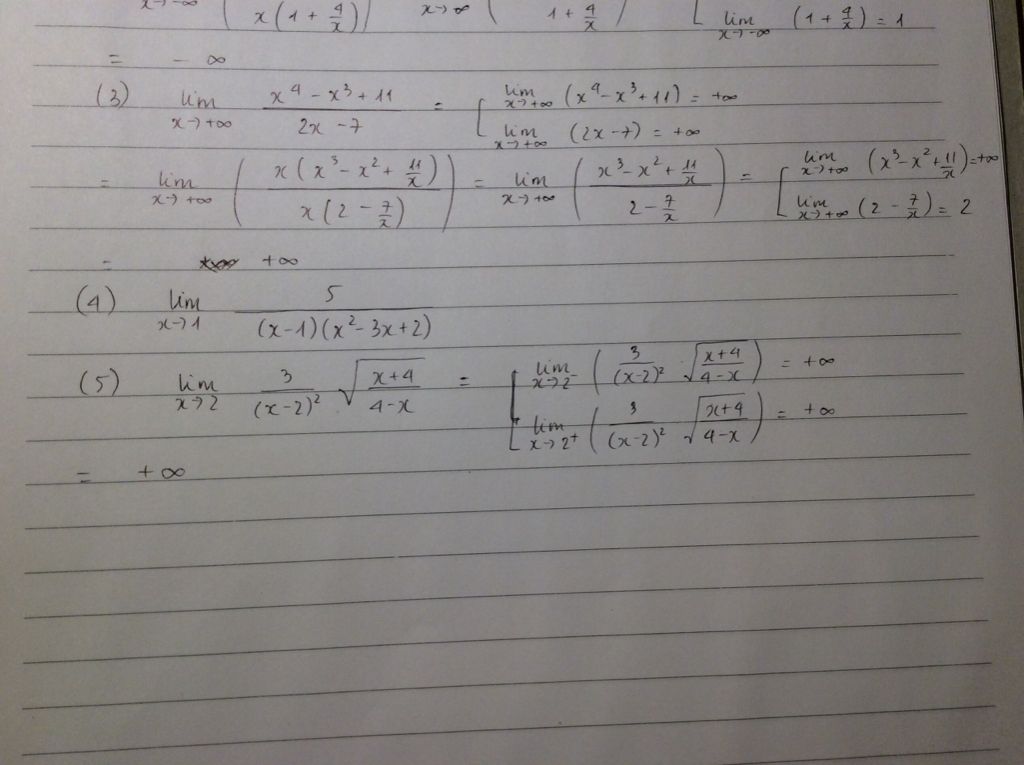 x→-∞ ( x(1 + 4/x) ) x→∞ ( 1 + 4/x ) [ lim x→-∞ (1 + 4/x) = 1
= - ∞
(3) lim x→+∞ (x⁴ - x³ + 11)/(2x - 7) = [ lim x→+∞ (x⁴ - x³ + 11) = +∞
lim x→+∞ (2x - 7) = +∞
= lim x→+∞ ( x(x³ - x² + 11/x) / x(2 - 7/x) ) = lim x→+∞ ( (x³ - x² + 11/x) / (2 - 7/x) ) = [ lim x→+∞ (x³ - x² + 11/x) = +∞
lim x→+∞ (2 - 7/x) = 2
= +∞
(4) lim x→1 5/((x-1)(x² - 3x + 2))
(5) lim x→2 3/(x-2)² √((x+4)/(4-x)) = [ lim x→2⁻ ( 3/(x-2)² √((x+4)/(4-x)) ) = +∞
lim x→2⁺ ( 3/(x-2)² √((x+4)/(4-x)) ) = +∞
= +∞